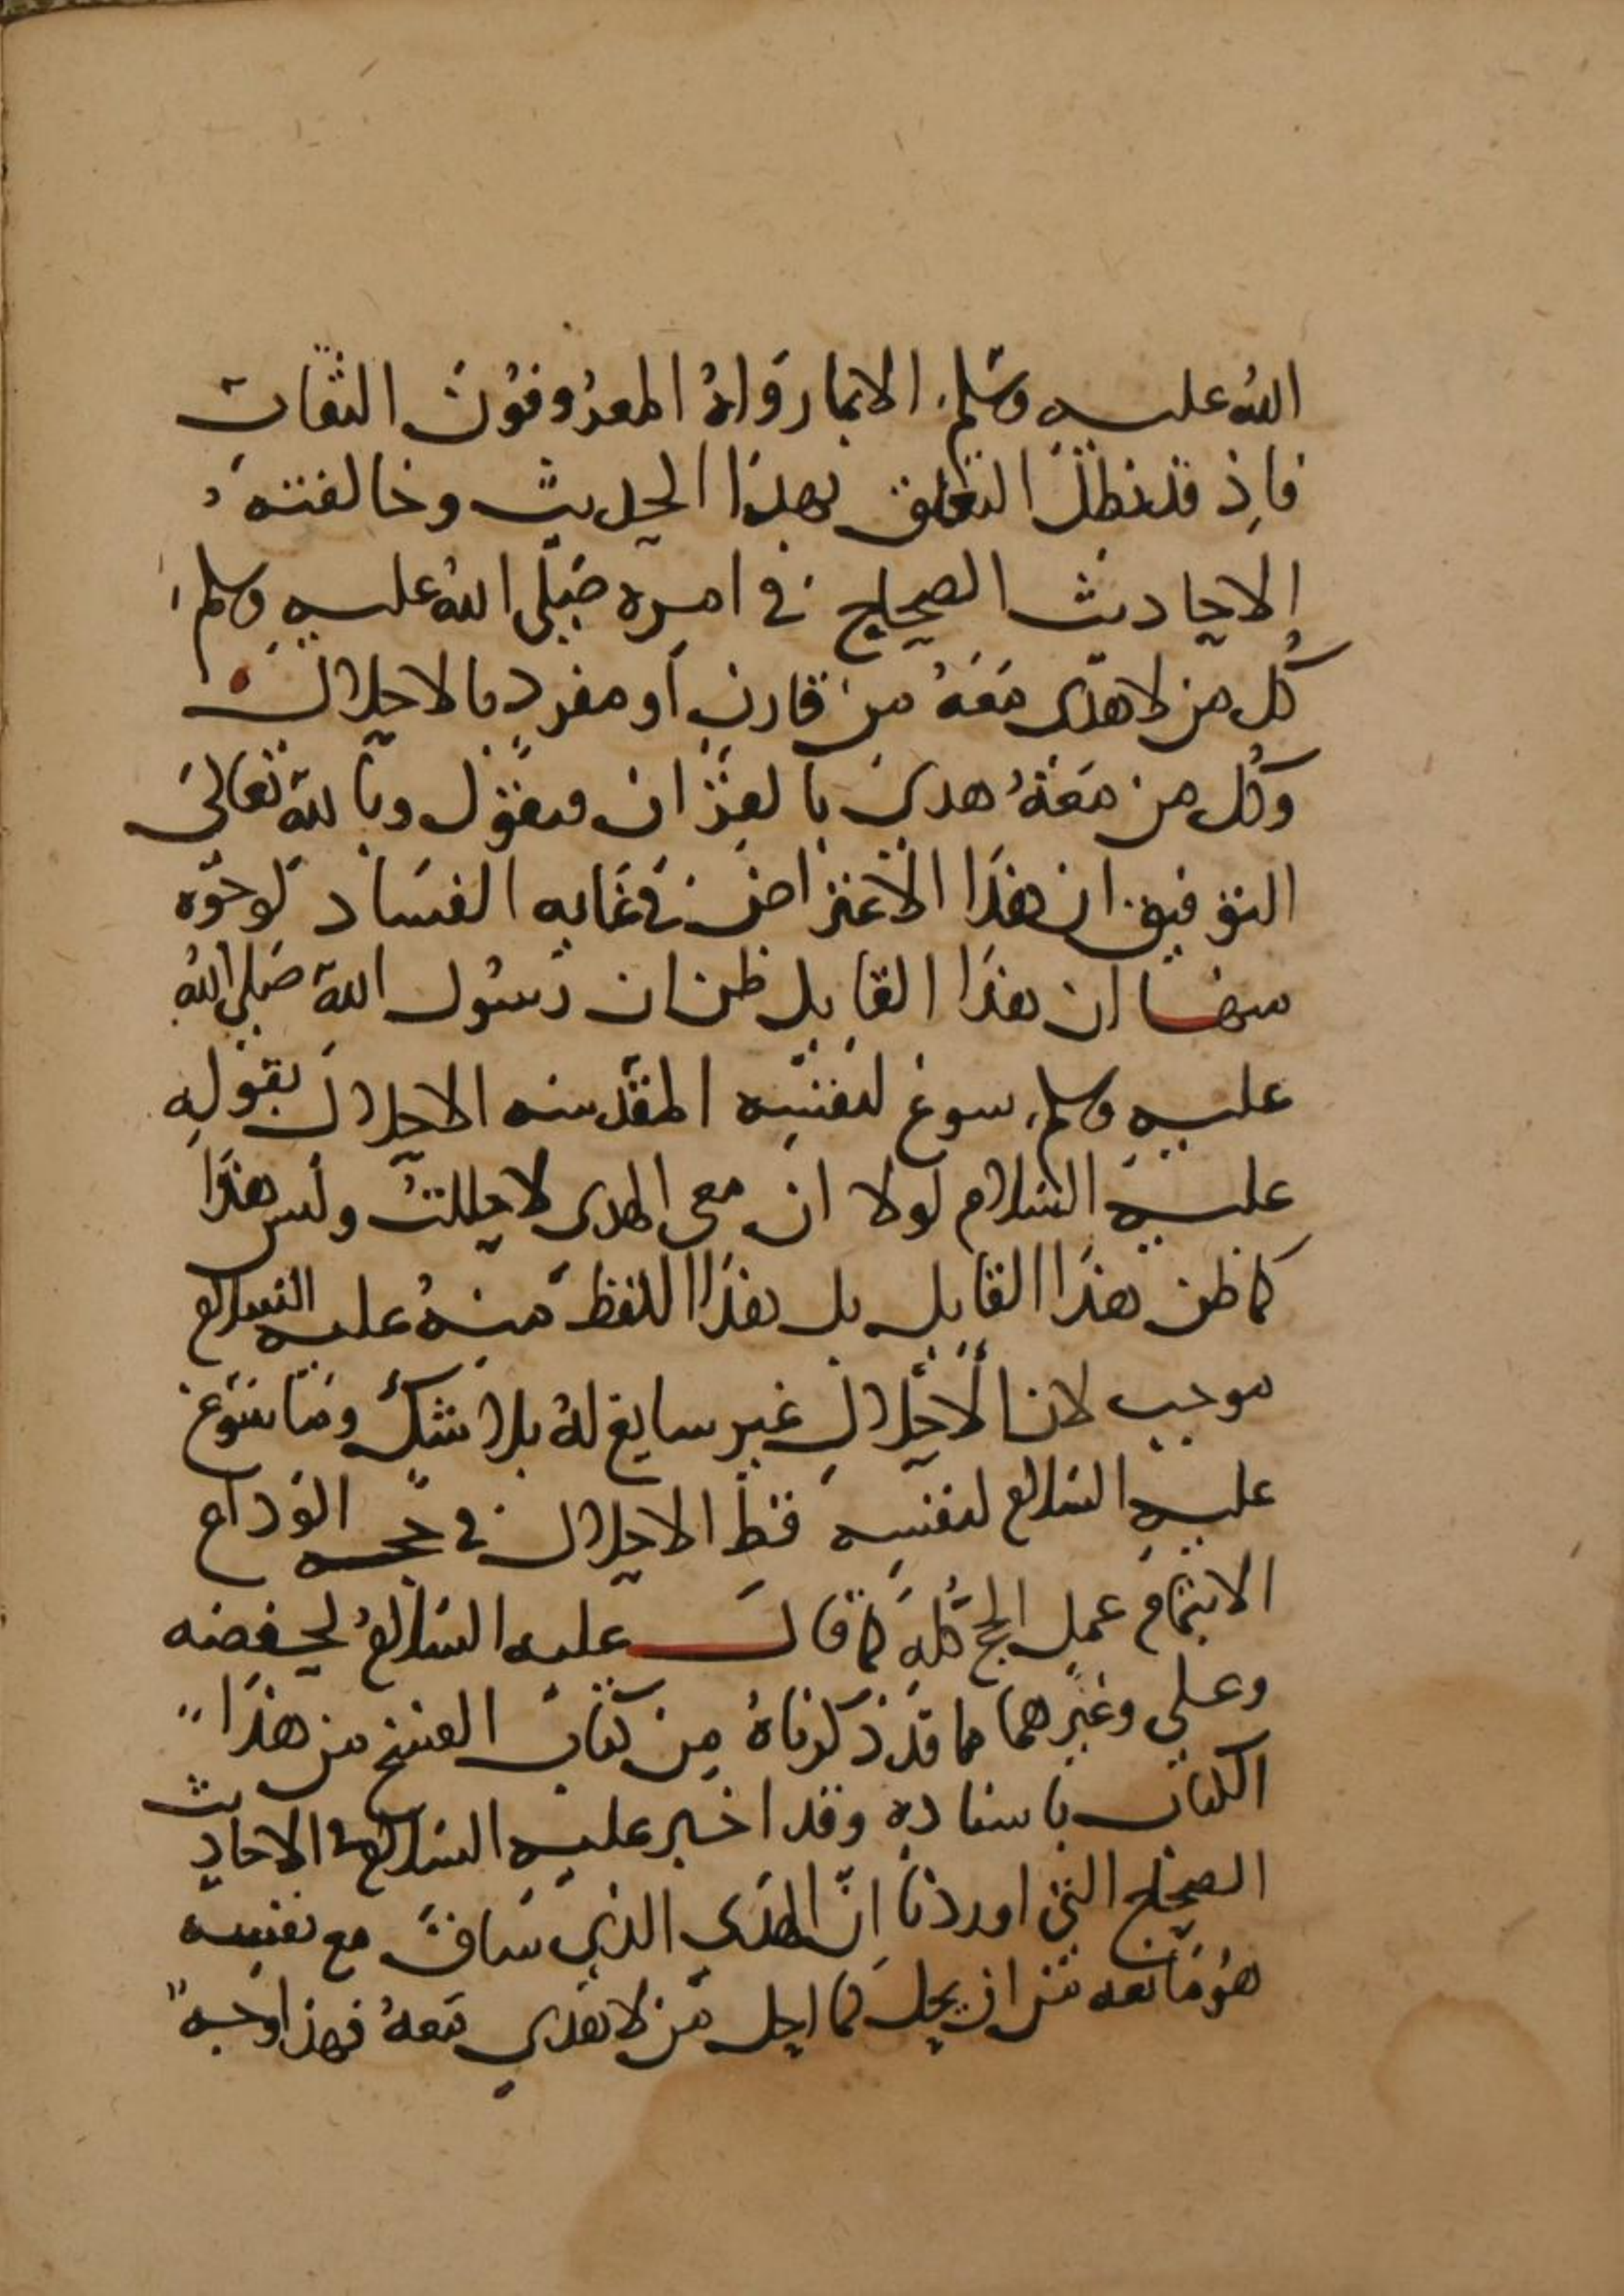 الله عليه وسلم الا بما رواه المعروفون الثقات
فاذ قد بطل التعلق بهذا الحديث وخالفته
الاحاديث الصحاح في امره صلى الله عليه وسلم
كل من لا هدى معه من قارن أو مفرد بالاحلال
وكل من معه هدي بالقران فنقول وبالله تعالى
التوفيق ان هذا الاعتراض في غايه الفساد لوجوه
منها ان هذا القايل ظن ان رسول الله صلى الله
عليه وسلم سوغ لنفسه المقدسه الاحلال بقوله
عليه السلام لولا ان معي الهدى لاحللت وليس هذا
كما ظن هذا القايل بل هذا اللفظ منه عليه السلام
موجب لان الاحلال غير سايغ له بلا شك وما سوغ
عليه السلام لنفسه قط الاحلال في حجه الوداع
الا بتمام عمل الحج كله كما قال عليه السلام لحفصه
وعلي وغيرهما مما قد ذكرناه من كتاب الفسخ من هذا
الكتاب باسناده وقد اخبر عليه السلام في الاحاديث
الصحاح التي اوردنا ان الهدي الذي ساق مع نفسه
هو مانعه من ان يحل كما احل من لا هدي معه فهذا وجه